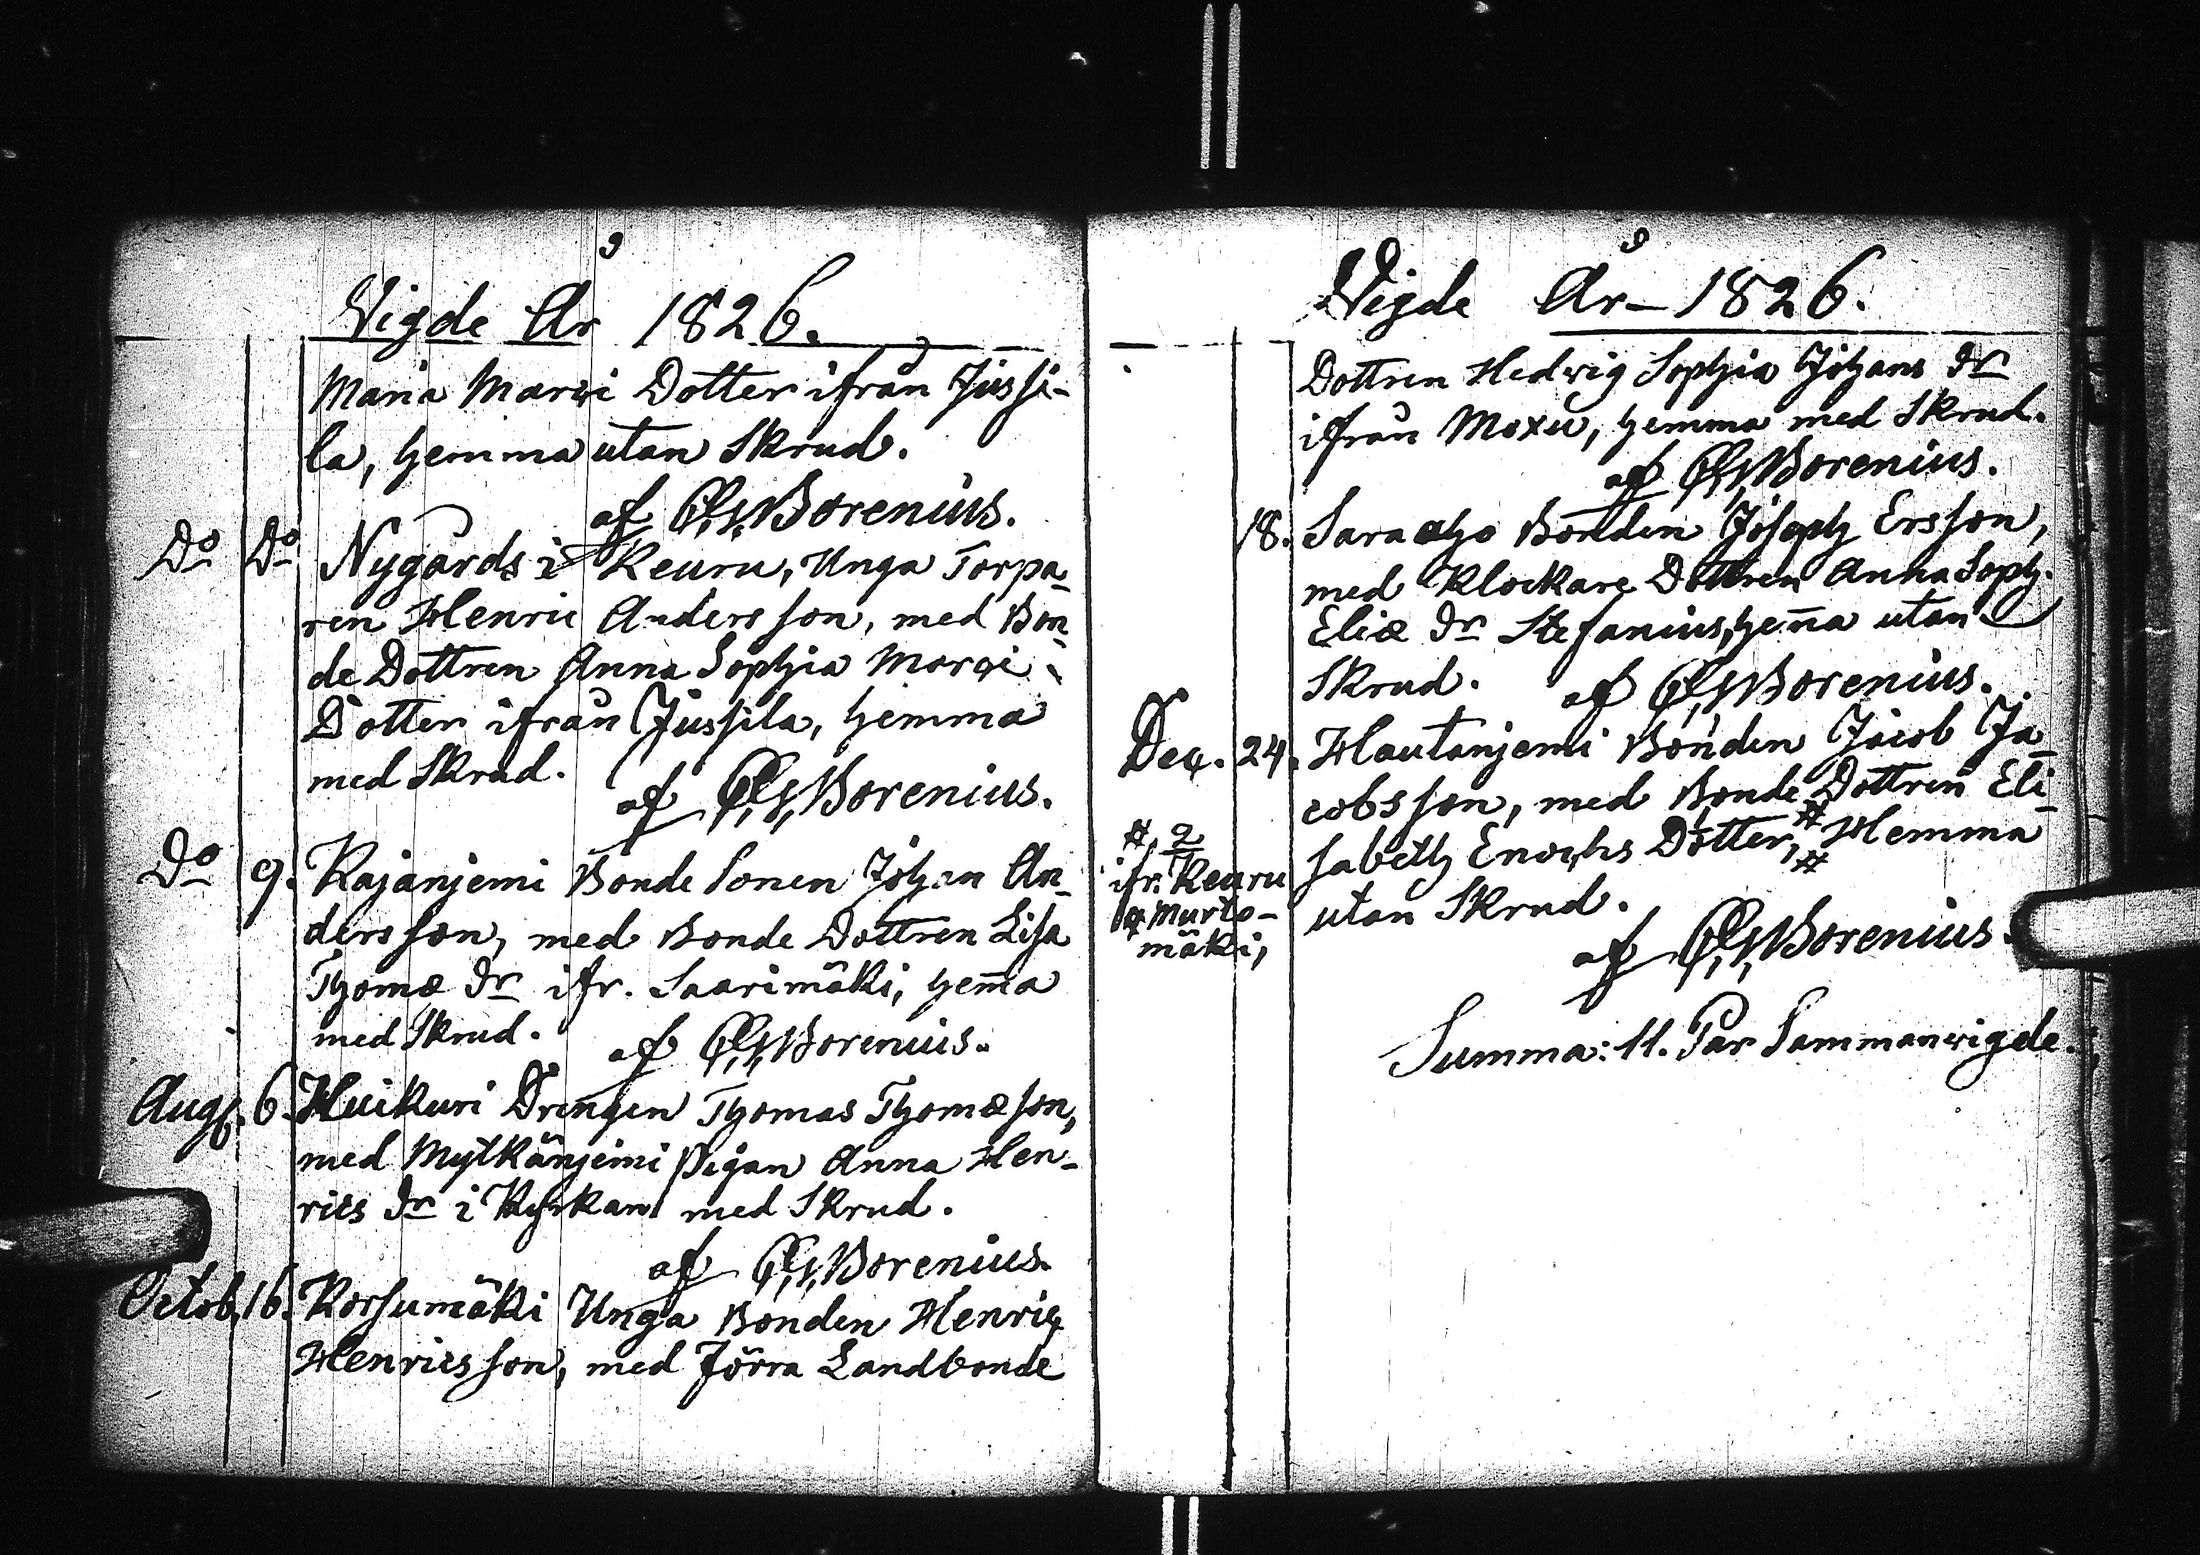 Vigde År 1826.
Maria Marci Dotter ifrån Jussi-
la, hemma utan Skrud.
af Borenius.
Do Do Nygårds i Keuru, Unga Torpa-
ren Henric Andersson, med Bon-
de Dottren Anna Sophia Marci
Dotter ifrån Jussila, hemma
med Skrud.
af Borenius.
Do 9. Kajanjemi Bonde Sonen Johan An-
dersson, med Bonde Dottren Lisa
Thomæ Dr ifr. Saarimäki, hem̄a
med Skrud. af Borenius.
Aug. 6. Huikuri Drengen Thomas Thomæson,
med Mytkänjemi Pigan Anna Hen-
rics Dr i Kyrkan med Skrud.
af Borenius.
Octob. 16. Korsumäki Unga Bonden Henric
Henricsson, med Jörra Landbonde
Vigde År 1826.
Dottren Hedvig Sophia Johans Dr
ifrån Moxu, hemma med Skrud.
af Borenius.
18. Saraaho Bonden Joseph Ersson,
med Klockare Dottren Anna Soph.
Eliæ Dr Stefanius, hem̄a utan
Skrud. af Borenius.
Dec. 24. Hautanjemi Bonden Jacob Ja-
cobsson, med Bonde Dottren Eli-
sabeth Enochs Dotter, # Hemma
utan Skrud.
# ifr. Keuru
Murto-
mäki,
af Borenius.
Summa: 11. Par Sammanvigde.